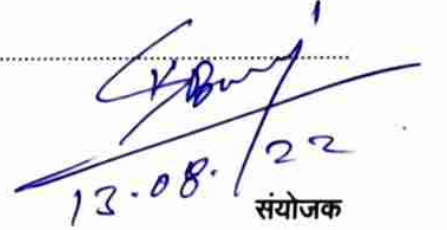 13.08.22
संयोजक